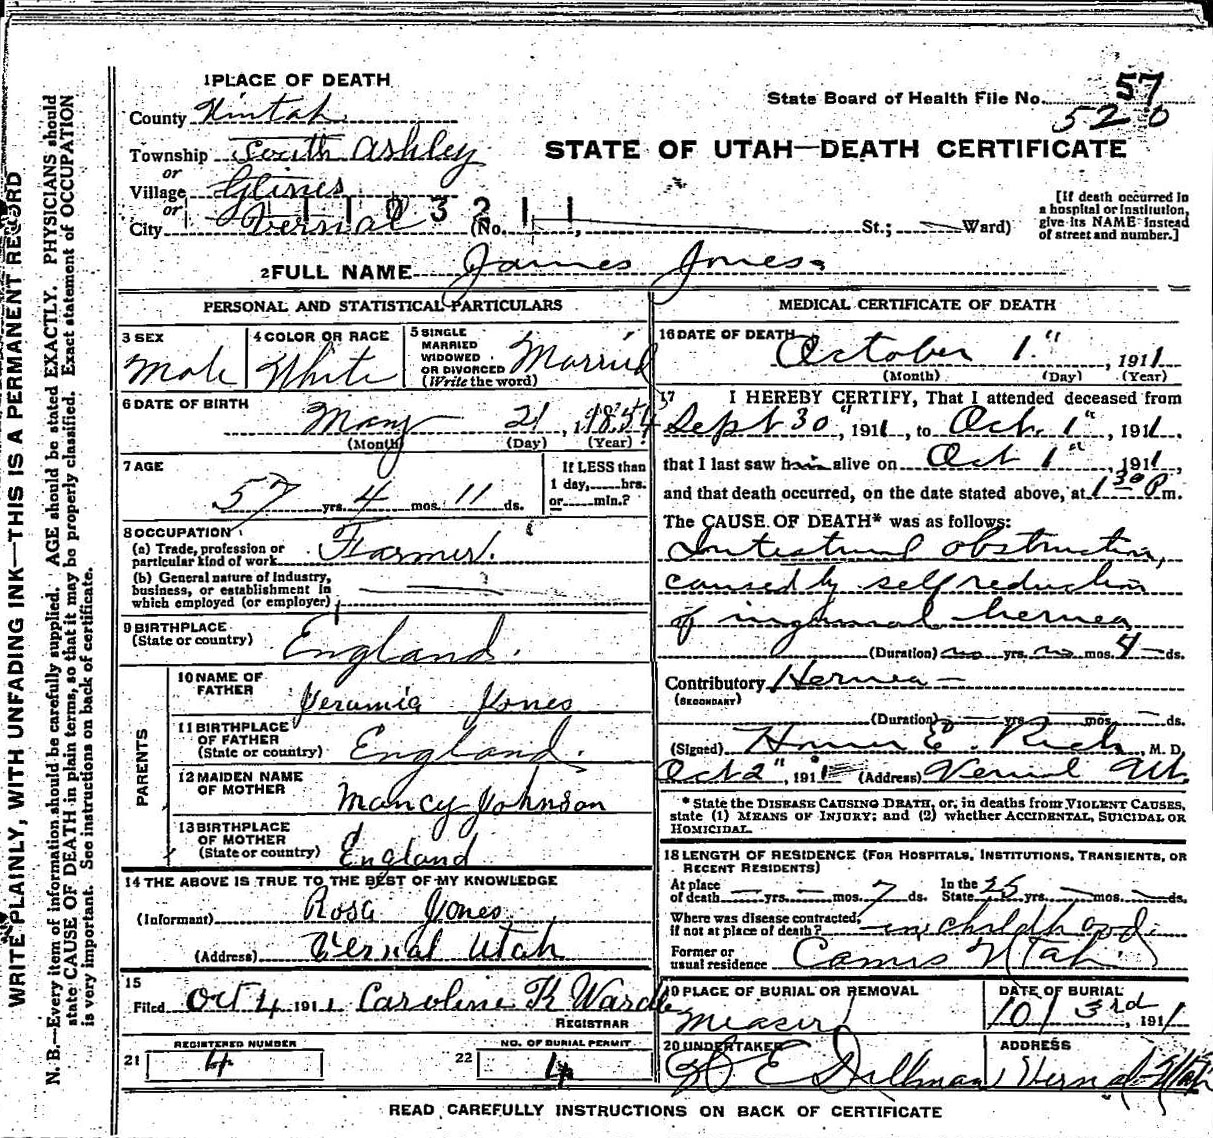 1 PLACE OF DEATH
57
State Board of Health File No. 520
County Uintah
Township South Ashley
STATE OF UTAH—DEATH CERTIFICATE
or
Village Glines
or
City Vernal (No. , St.; Ward)
[If death occurred in
a hospital or institution,
give its NAME instead
of street and number.]
2 FULL NAME James Jones
PERSONAL AND STATISTICAL PARTICULARS
3 SEX
Male
4 COLOR OR RACE
White
5 SINGLE
MARRIED
WIDOWED
OR DIVORCED
(Write the word)
Married
6 DATE OF BIRTH
May 21, 1854
(Month) (Day) (Year)
7 AGE
57 yrs. 4 mos. 11 ds.
If LESS than
1 day, hrs.
or min.?
8 OCCUPATION
(a) Trade, profession or
particular kind of work Farmer.
(b) General nature of Industry,
business, or establishment in
which employed (or employer)
9 BIRTHPLACE
(State or country) England.
PARENTS
10 NAME OF
FATHER
Jeramia Jones
11 BIRTHPLACE
OF FATHER
(State or country) England.
12 MAIDEN NAME
OF MOTHER
Mancy Johnson
13 BIRTHPLACE
OF MOTHER
(State or country) England
14 THE ABOVE IS TRUE TO THE BEST OF MY KNOWLEDGE
(Informant) Rosa Jones
(Address) Vernal Utah
15
Filed Oct 4 1911 Caroline K Wardle
REGISTRAR
REGISTERED NUMBER
21 4
NO. OF BURIAL PERMIT
22 4
MEDICAL CERTIFICATE OF DEATH
16 DATE OF DEATH
October 1", 1911
(Month) (Day) (Year)
17 I HEREBY CERTIFY, That I attended deceased from
Sept 30", 1911, to Oct. 1", 1911.
that I last saw him alive on Oct 1", 1911,
and that death occurred, on the date stated above, at 1 30 P m.
The CAUSE OF DEATH* was as follows:
Intestinal obstruction,
caused by self reduction
of inguinal hernea
(Duration) no yrs. no mos. 4 ds.
Contributory Hernea
(SECONDARY)
(Duration) yrs. mos. ds.
(Signed) Homer E. Rich, M. D.
Oct 2", 1911 (Address) Vernal Ut.
* State the DISEASE CAUSING DEATH, or, in deaths from VIOLENT CAUSES,
state (1) MEANS OF INJURY; and (2) whether ACCIDENTAL, SUICIDAL OR
HOMICIDAL.
18 LENGTH OF RESIDENCE (FOR HOSPITALS, INSTITUTIONS, TRANSIENTS, OR
RECENT RESIDENTS)
At place
of death yrs. mos. 7 ds.
In the
State 25 yrs. mos. ds.
Where was disease contracted,
if not at place of death? in childhood.
Former or
usual residence Utah
19 PLACE OF BURIAL OR REMOVAL
Measer
DATE OF BURIAL
10/3rd, 1911
20 UNDERTAKER
E Dillman
ADDRESS
Vernal Utah
READ CAREFULLY INSTRUCTIONS ON BACK OF CERTIFICATE
WRITE PLAINLY, WITH UNFADING INK—THIS IS A PERMANENT RECORD
N. B.—Every item of information should be carefully supplied. AGE should be stated EXACTLY. PHYSICIANS should
state CAUSE OF DEATH in plain terms, so that it may be properly classified. Exact statement of OCCUPATION
is very important. See instructions on back of certificate.